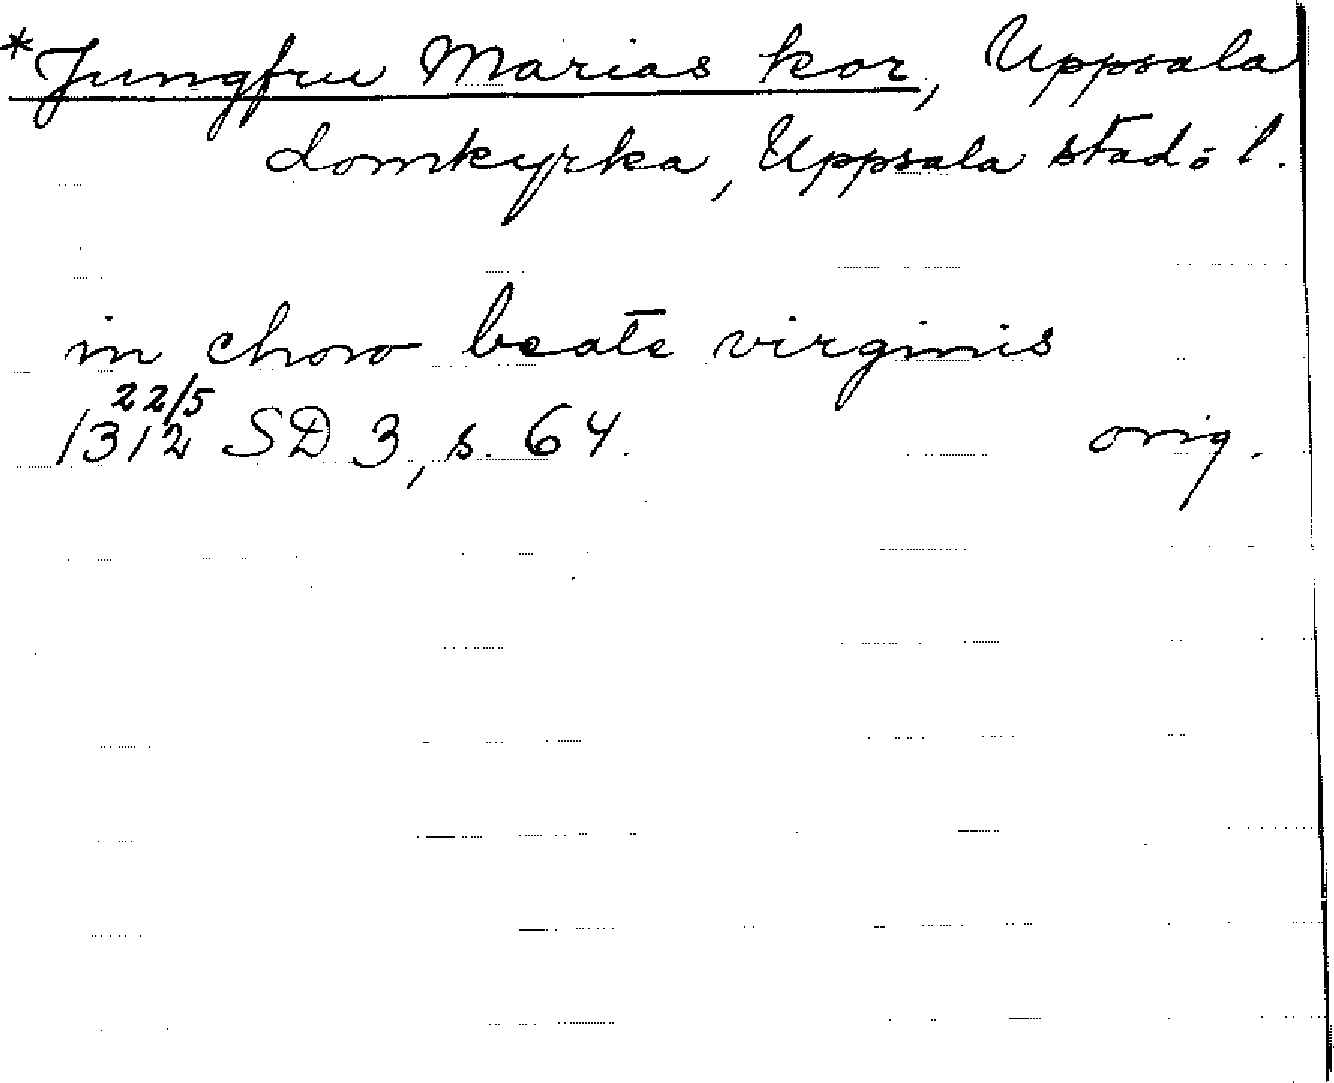 *Jungfru Marias kor, Uppsala
domkyrka, Uppsala stad o l.
in choro beate virginis
22/5
1312 SD 3, s. 64. orig.